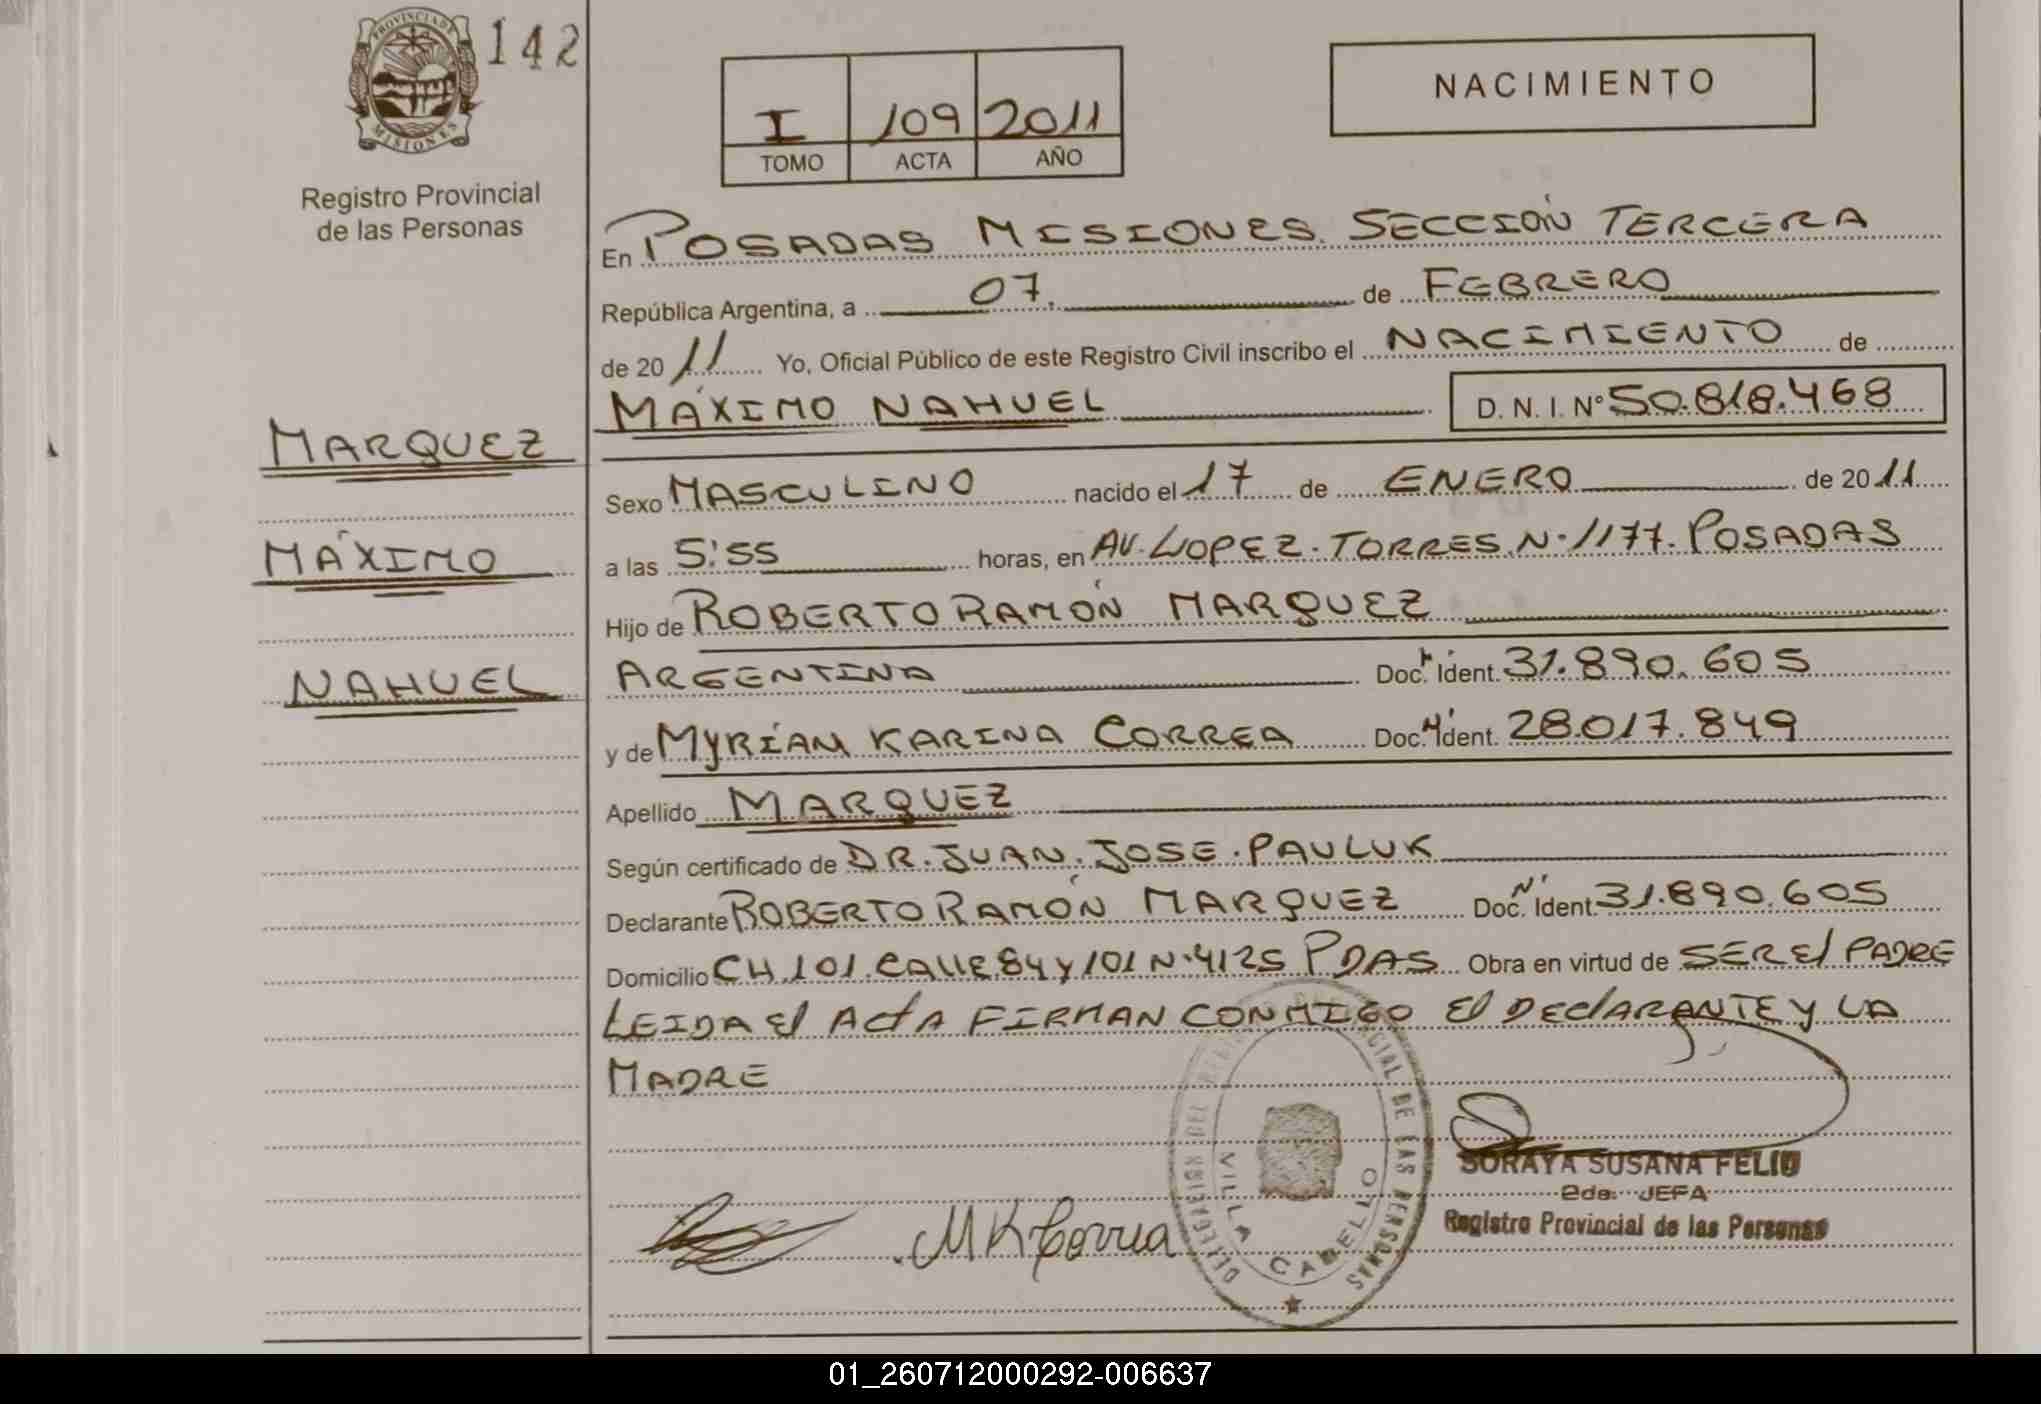 PROVINCIA DE
MISIONES
142
Registro Provincial
de las Personas
I 109 2011
TOMO ACTA AÑO
NACIMIENTO
En POSADAS MISIONES. SECCIÓN TERCERA
República Argentina, a 07. de FEBRERO
de 20 11 Yo, Oficial Público de este Registro Civil inscribo el NACIMIENTO de
MÁXIMO NAHUEL D. N. I. N° 50.818.468
MARQUEZ
MÁXIMO
NAHUEL
Sexo MASCULINO nacido el 17 de ENERO de 20 11
a las 5:55 horas, en AV. LOPEZ. TORRES. N. 1177. POSADAS
Hijo de ROBERTO RAMÓN MARQUEZ
ARGENTINA Doc. Ident. 31.890.605
y de MYRIAN KARINA CORREA Doc. Ident. 28.017.849
Apellido MARQUEZ
Según certificado de DR. JUAN. JOSE. PAULUK
Declarante ROBERTO RAMÓN MARQUEZ Doc. Ident. 31.890.605
Domicilio CH. 101. CALLE 84 Y 101 N. 4125 PDAS Obra en virtud de SER El PADRE
LEIDA El ACTA FIRMAN CONMIGO El DEClARANTE Y LA
MADRE
DELEGACION DEL REGISTRO PROVINCIAL DE LAS PERSONAS
VILLA CABELLO
M K Correa
SORAYA SUSANA FELIU
2da. JEFA
Registro Provincial de las Personas
01_260712000292-006637